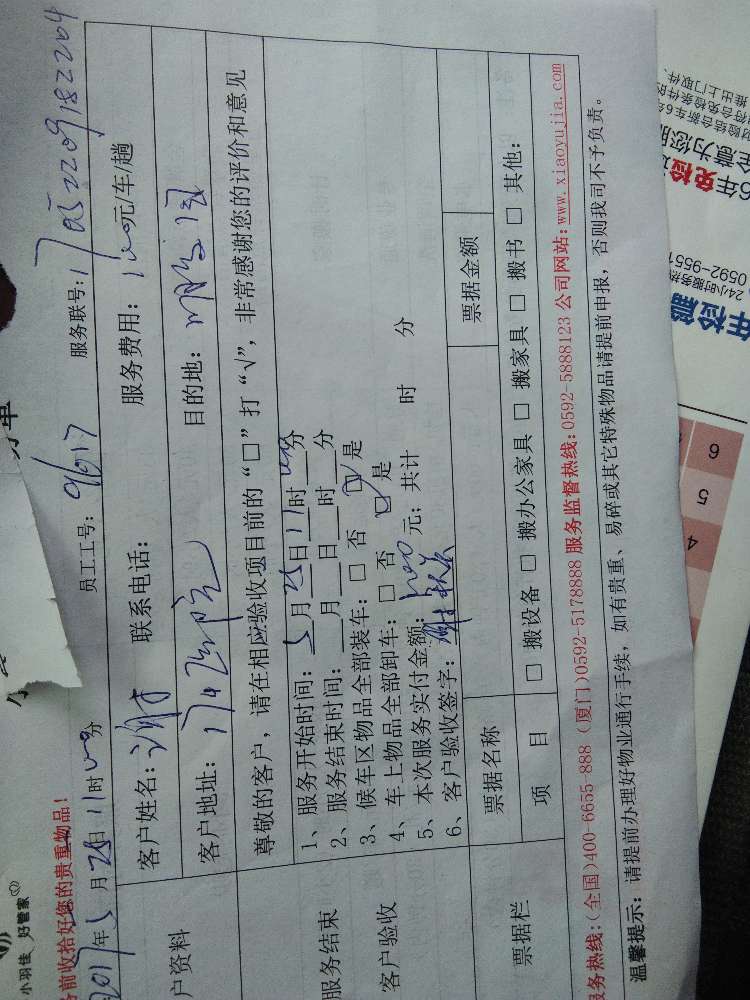 小羽佳 好管家
前收拾好您的贵重物品!
2017年5月25日11时00分
员工工号: 9617 服务联号:
户资料
客户姓名: 联系电话: 服务费用: 元/车/趟
客户地址: 目的地:
尊敬的客户,请在相应验收项目前的“□”打“√”,非常感谢您的评价和意见
服务结束
客户验收
1、服务开始时间: 5月25日11时00分
2、服务结束时间: 月 日 时 分
3、候车区物品全部装车: □ 否 ☑ 是
4、车上物品全部卸车: □ 否 ☑ 是
5、本次服务实付金额: 元; 共计 时 分
6、客户验收签字:
票据栏
票据名称 票据金额
项 目 □ 搬设备 □ 搬办公家具 □ 搬家具 □ 搬书 □ 其他:
务热线:(全国)400-6655-888 (厦门)0592-5178888 服务监督热线:0592-5888123 公司网站:www.xiaoyujia.com
温馨提示: 请提前办理好物业通行手续, 如有贵重、易碎或其它特殊物品请提前申报, 否则我司不予负责。
推出上门取件、
6年免检
意为您服
24小时服务热
0592-9551
年检
6
5
4